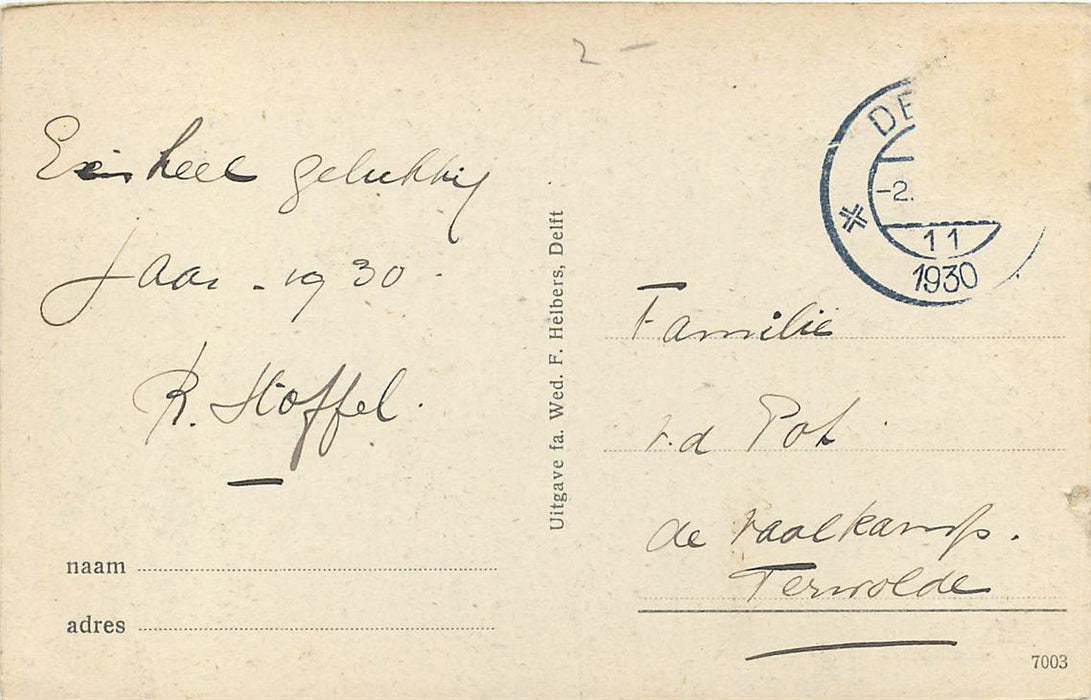 2 -
Een heel gelukkig
Jaar - 1930.
R. Stoffel.
naam
adres
Uitgave fa. Wed. F. Helbers, Delft
DE
-2.
11
1930
Familie
v.d Pol
de
Terwolde
7003